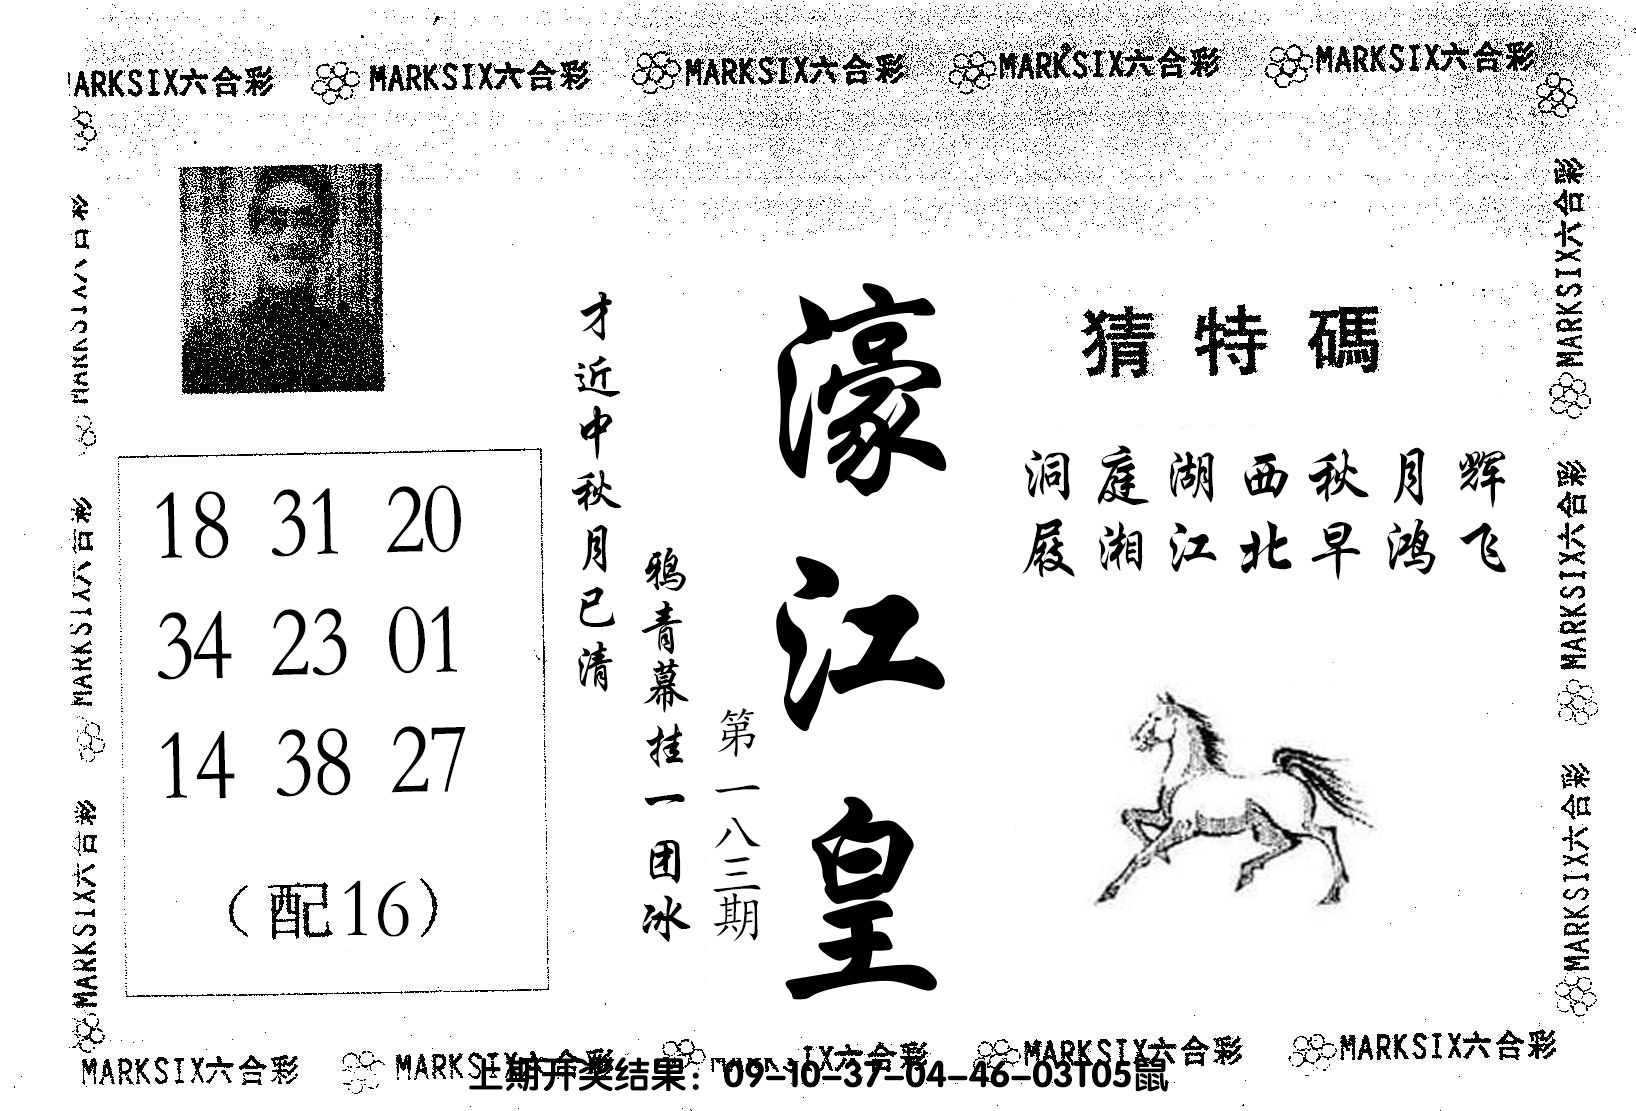 MARKSIX六合彩 MARKSIX六合彩 MARKSIX六合彩 MARKSIX六合彩
猜特碼
洞庭湖西秋月辉
潇湘江北早鸿飞
濠江皇
第一八三期
才近中秋月已清
鸦青幕挂一团冰
18 31 20
34 23 01
14 38 27
（配16）
MARKSIX六合彩
MARKSIX六合彩
MARKSIX六合彩
MARKSIX六合彩
MARKSIX六合彩
MARKSIX六合彩 MARKSIX六合彩 MARKSIX六合彩 MARKSIX六合彩
上期开奖结果：09-10-37-04-46-03T05鼠